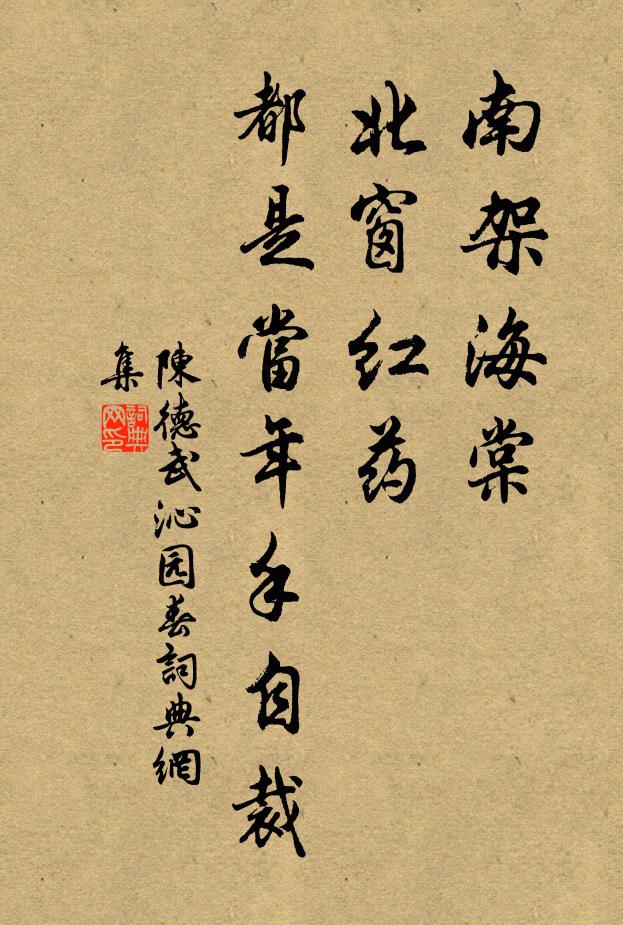 南架海棠
北窗红药
都是當年手自裁
陳德武沁园春詞典網
集
詞典网印